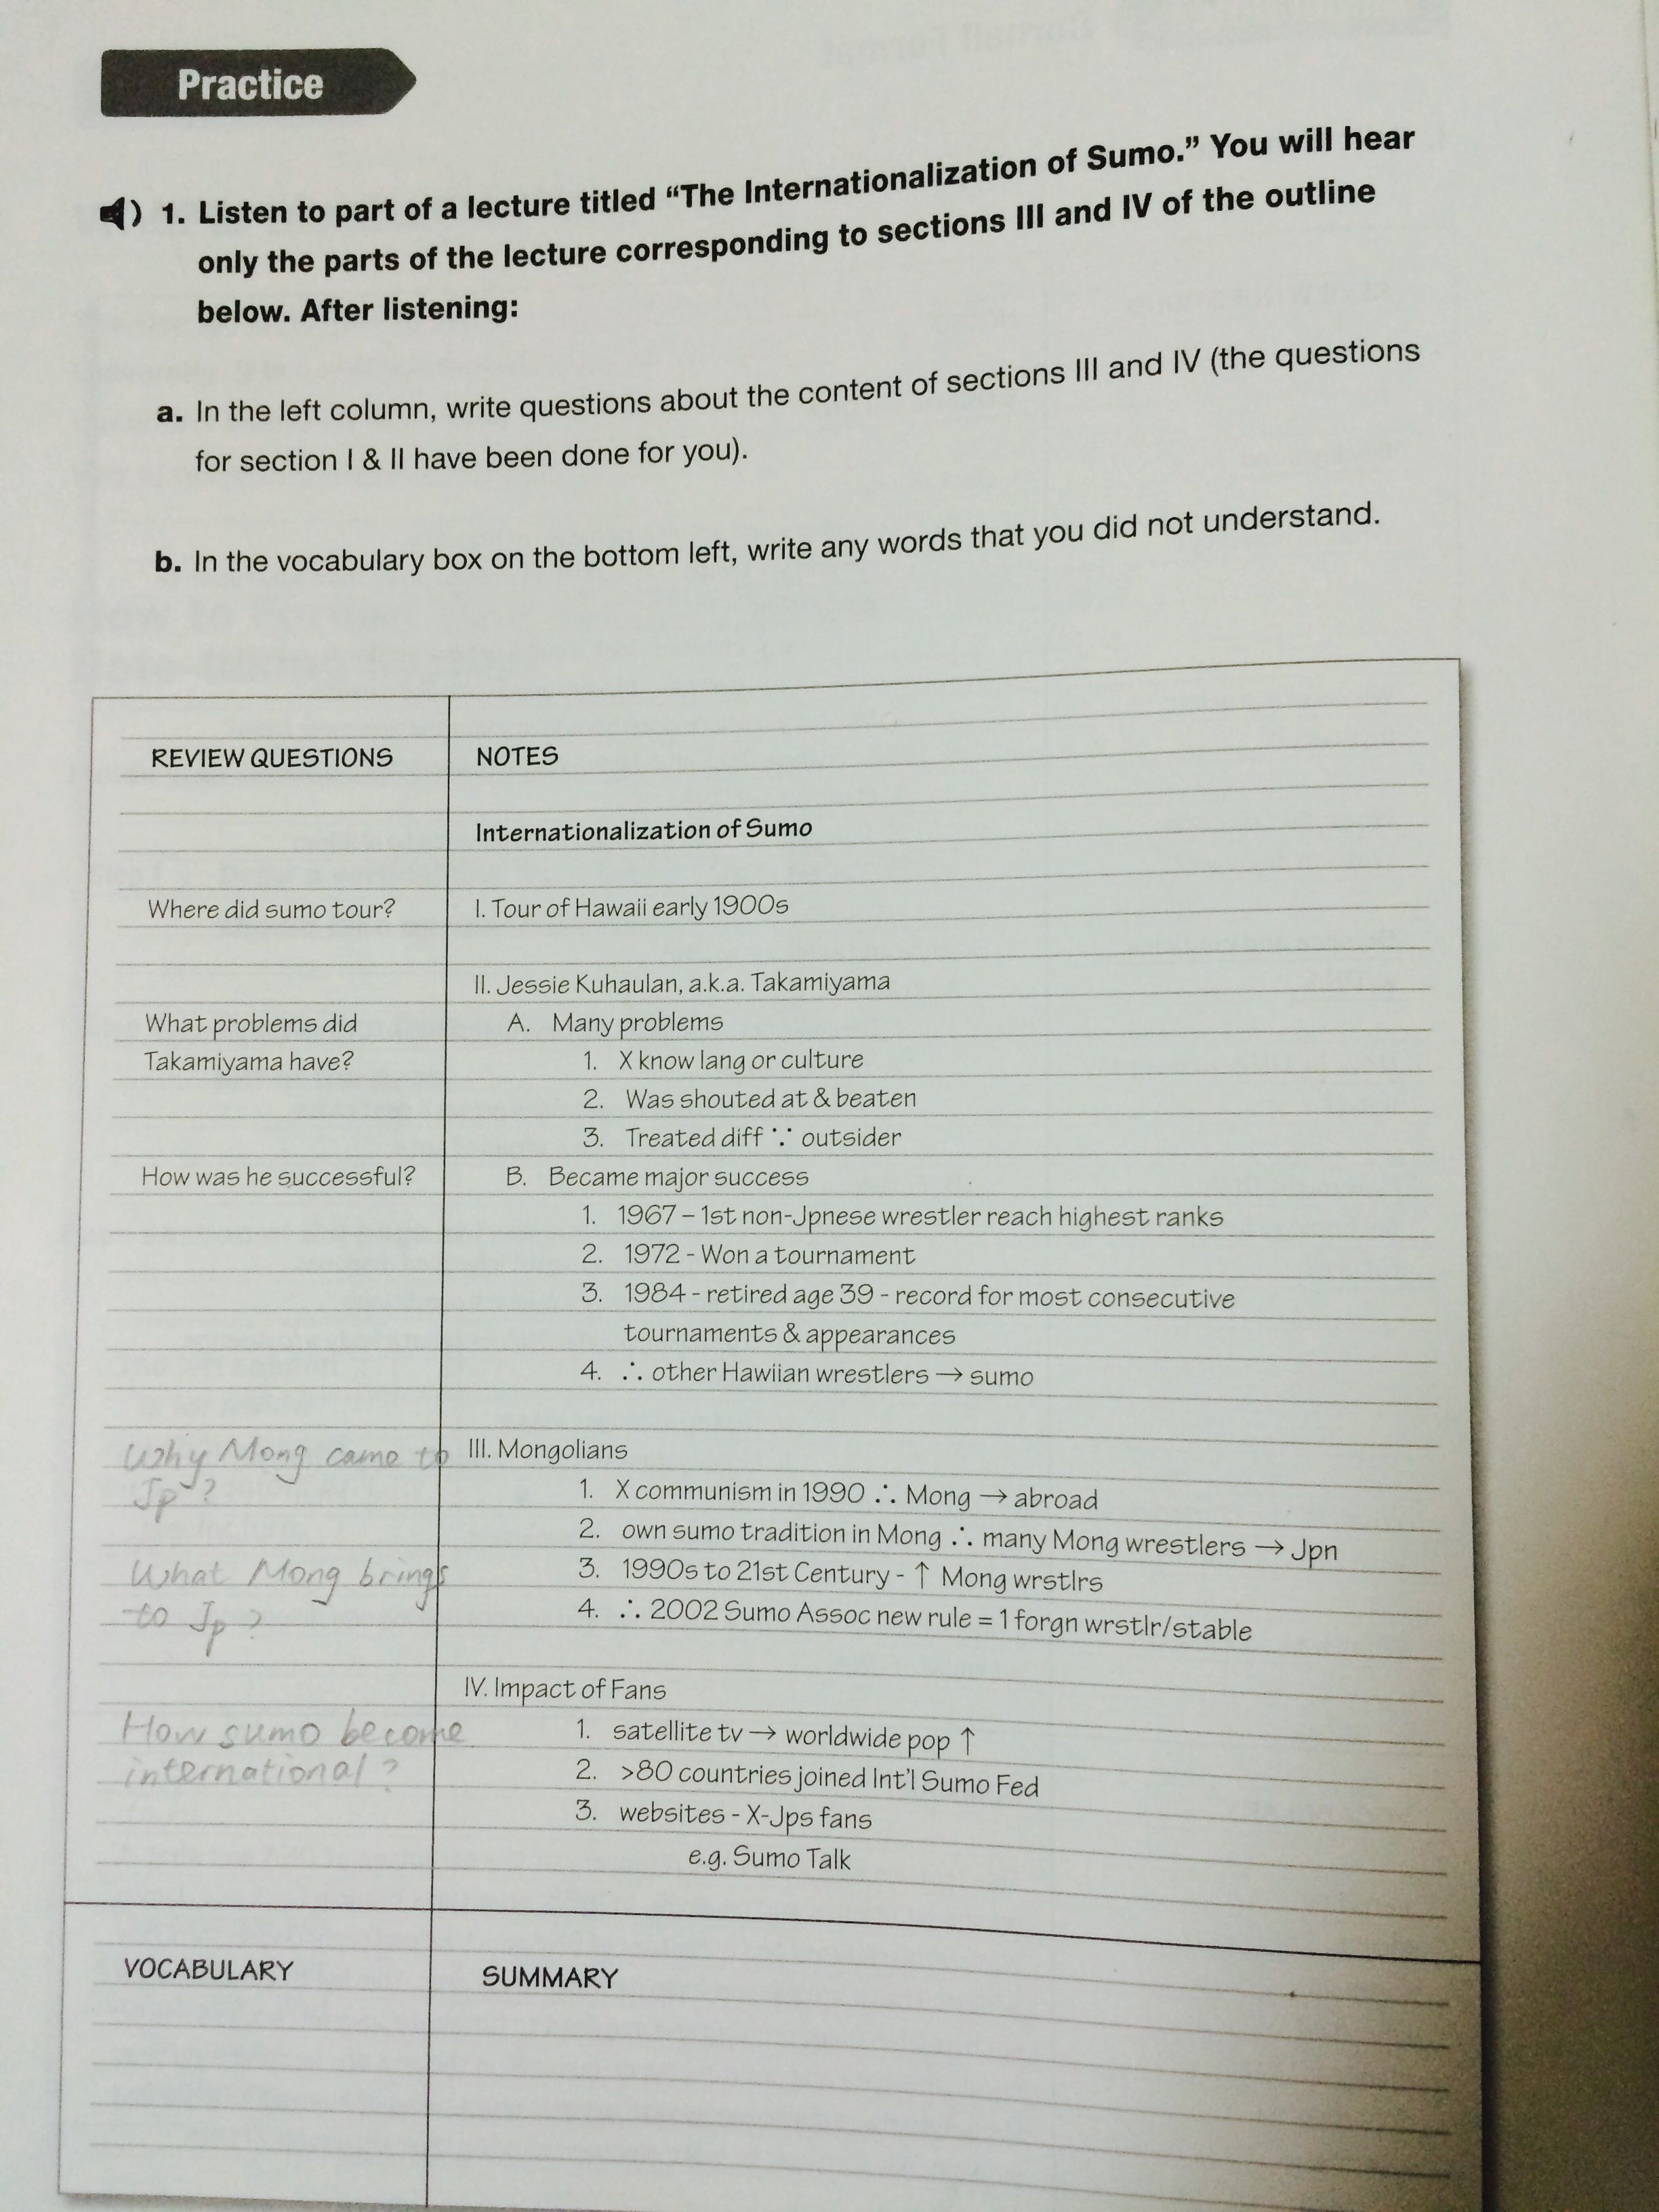 Practice
1. Listen to part of a lecture titled “The Internationalization of Sumo.” You will hear
only the parts of the lecture corresponding to sections III and IV of the outline
below. After listening:
a. In the left column, write questions about the content of sections III and IV (the questions
for section I & II have been done for you).
b. In the vocabulary box on the bottom left, write any words that you did not understand.
REVIEW QUESTIONS NOTES
Internationalization of Sumo
Where did sumo tour? I. Tour of Hawaii early 1900s
II. Jessie Kuhaulan, a.k.a. Takamiyama
What problems did A. Many problems
Takamiyama have? 1. X know lang or culture
2. Was shouted at & beaten
3. Treated diff ∵ outsider
How was he successful? B. Became major success
1. 1967 – 1st non-Jpnese wrestler reach highest ranks
2. 1972 - Won a tournament
3. 1984 - retired age 39 - record for most consecutive
tournaments & appearances
4. ∴ other Hawiian wrestlers → sumo
Why Mong came to III. Mongolians
Jp? 1. X communism in 1990 ∴ Mong → abroad
2. own sumo tradition in Mong ∴ many Mong wrestlers → Jpn
What Mong brings 3. 1990s to 21st Century - ↑ Mong wrstlrs
to Jp? 4. ∴ 2002 Sumo Assoc new rule = 1 forgn wrstlr/stable
IV. Impact of Fans
How sumo become 1. satellite tv → worldwide pop ↑
international? 2. >80 countries joined Int'l Sumo Fed
3. websites - X-Jps fans
e.g. Sumo Talk
VOCABULARY SUMMARY